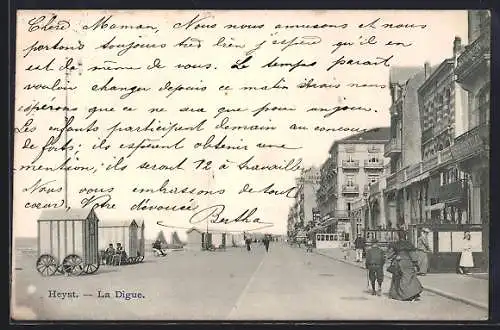 Chère Maman, Nous nous amusons et nous
portons toujours très bien j'espère qu'il en
est de même de vous. Le temps parait
vouloir changer depuis ce matin mais nous
espérons que ce ne sera que pour un jour.
Les enfants participent demain au concours
de forts, ils espèrent obtenir une
mention, ils seront 12 à travailler
Nous vous embrassons de tout
cœur, Votre dévouée
Bertha
Heyst. — La Digue.